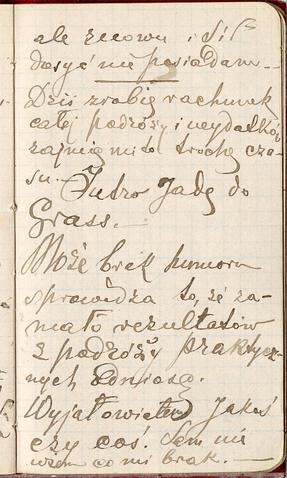 ale znowu i sił
dosyć nie posiadam. —
Dziś zrobię rachunek
całej podróży i wydatków
zajmie mi to trochę cza-
su. — Jutro Jadę do
Grass. —
Może brak humoru
sprowadza to, że za-
mało rezultatów
z podróży praktycz-
nych odniosę.
Wyjałowiałem Jakoś
czy coś. Sam nie
wiem co mi brak. —